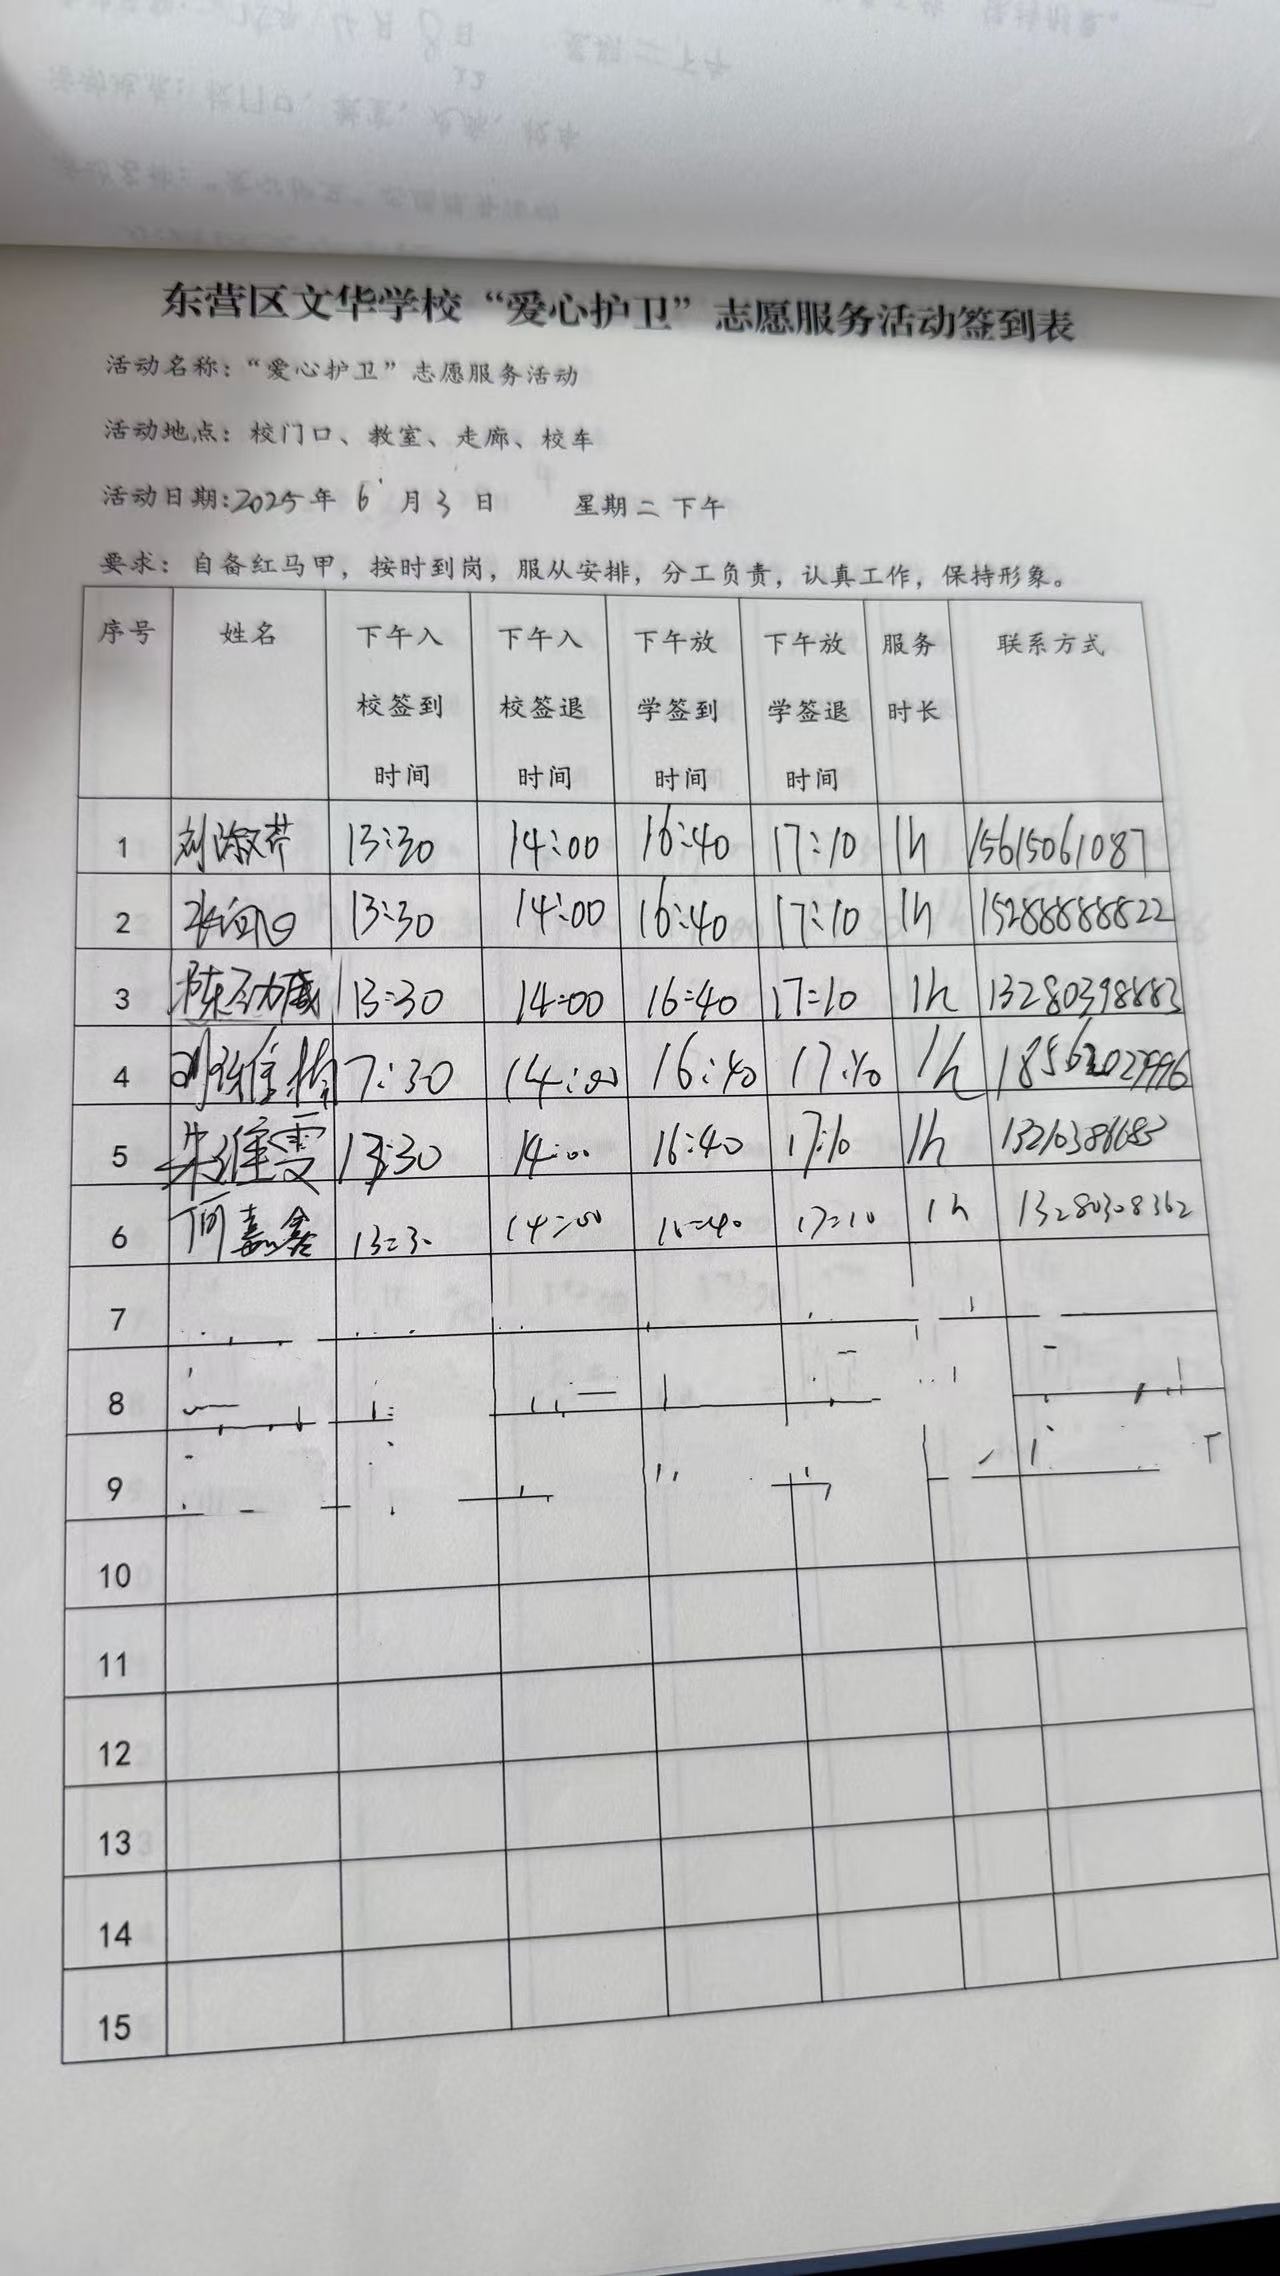 东营区文华学校“爱心护卫”志愿服务活动签到表
活动名称：“爱心护卫”志愿服务活动
活动地点：校门口、教室、走廊、校车
活动日期:2025年 6 月 3 日 星期二下午
要求：自备红马甲，按时到岗，服从安排，分工负责，认真工作，保持形象。
序号 姓名 下午入校签到时间 下午入校签退时间 下午放学签到时间 下午放学签退时间 服务时长 联系方式
1 刘淑芹 13:30 14:00 16:40 17:10 1h 15615061087
2 13:30 14:00 16:40 17:10 1h 15288888822
3 陈玉威 13:30 14:00 16:40 17:10 1h 13280398883
4 7:30 14:00 16:40 17:10 1h
5 朱维雯 13:30 14:00 16:40 17:10 1h
6 何嘉鑫 13:30 14:00 16:40 17:10 1h 13280308362
7
8
9
10
11
12
13
14
15